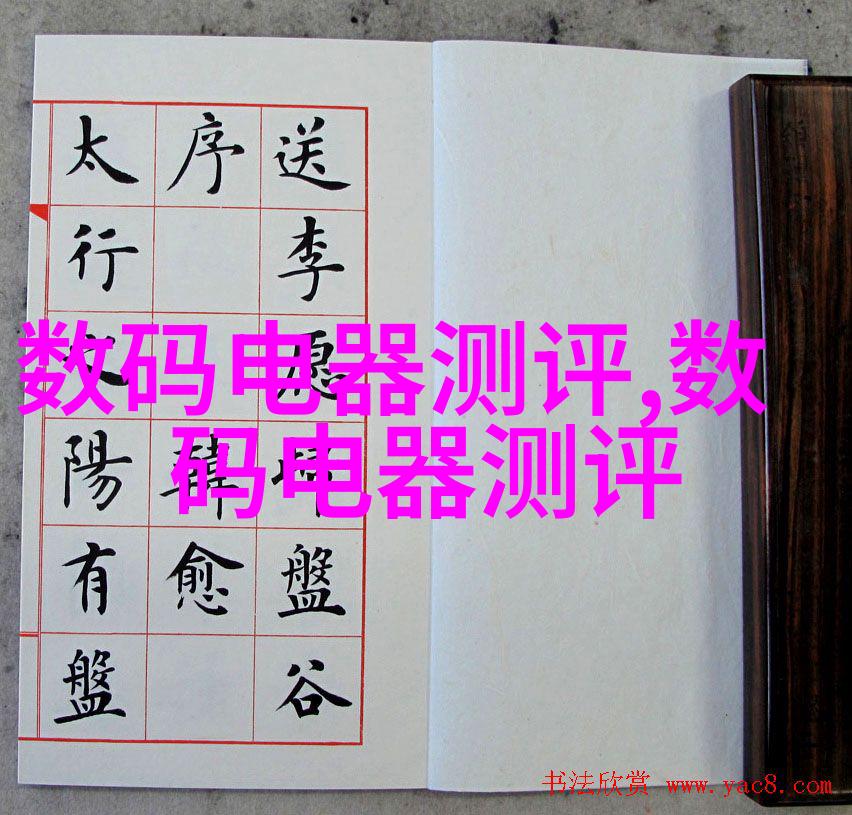 送李愿盤谷
序 韓愈
太行之陽有盤
数码电器测评,数
码电器测评
书法欣赏 www.yac8.com